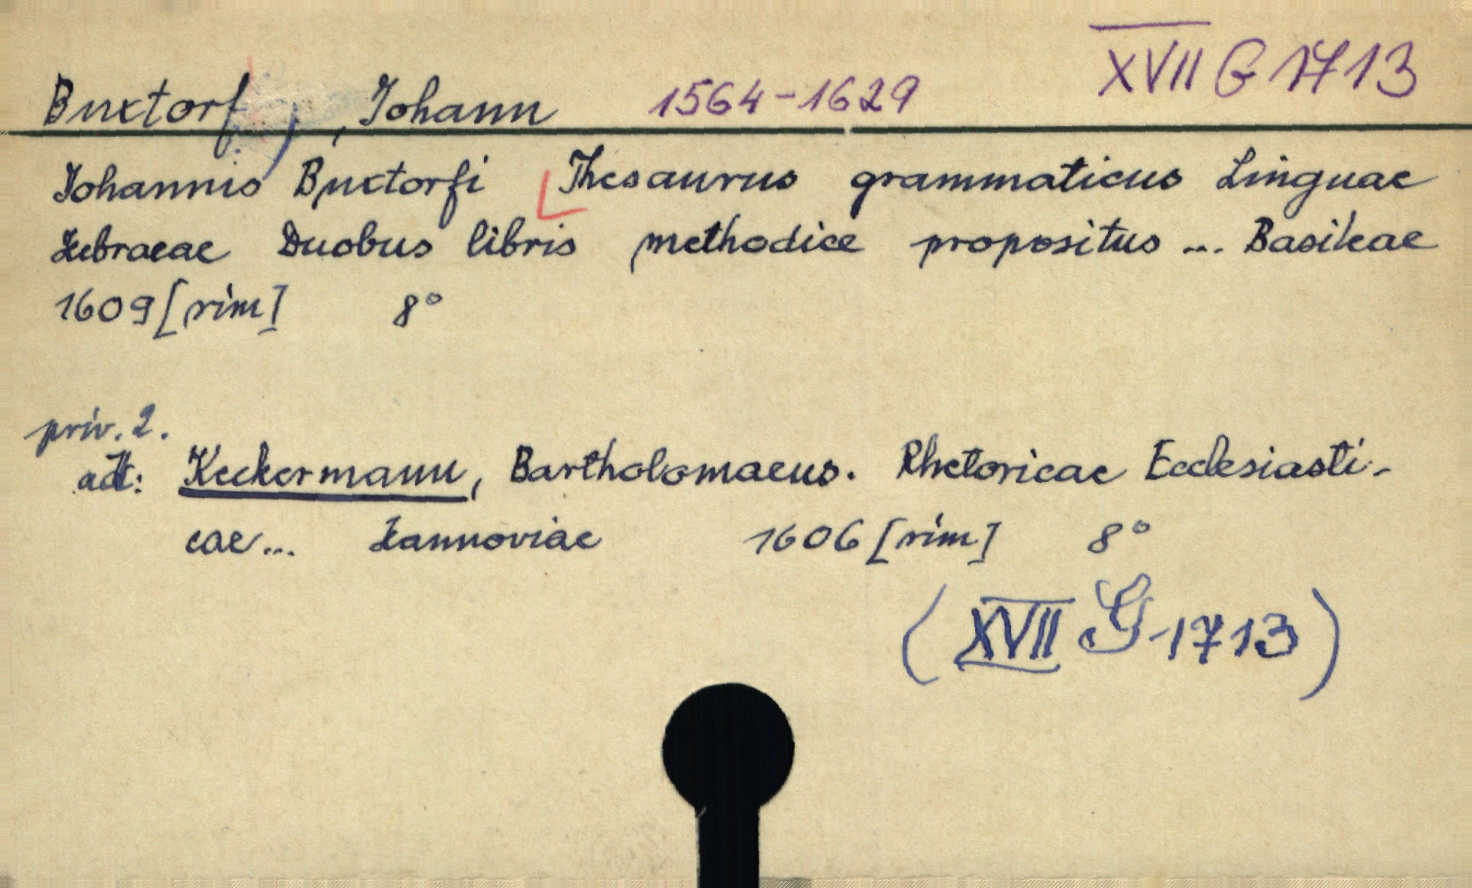 XVII G 1713
Buxtorf, Johann 1564-1629
Johannis Buxtorfi Thesaurus grammaticus Linguae
Hebraeae Duobus libris methodice propositus ... Basileae
1609 [rim] 8°
priv. 2.
adt: Keckermann, Bartholomaeus. Rhetoricae Ecclesiasti-
cae... Hannoviae 1606 [rim] 8°
(XVII G 1713)